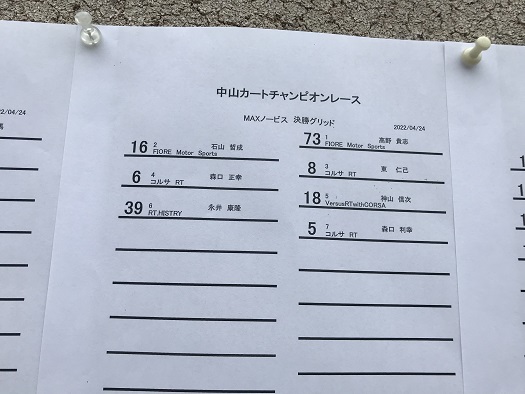 中山カートチャンピオンレース
MAXノービス 決勝グリッド
2022/04/24
73 1 高野 貴志
FIORE Motor Sports
16 2 石山 哲成
FIORE Motor Sports
8 3 東 仁己
コルサ RT
6 4 森口 正幸
コルサ RT
18 5 神山 信次
VersusRTwithCORSA
39 6 永井 康隆
RT.HISTRY
5 7 森口 利幸
コルサ RT
22/04/24